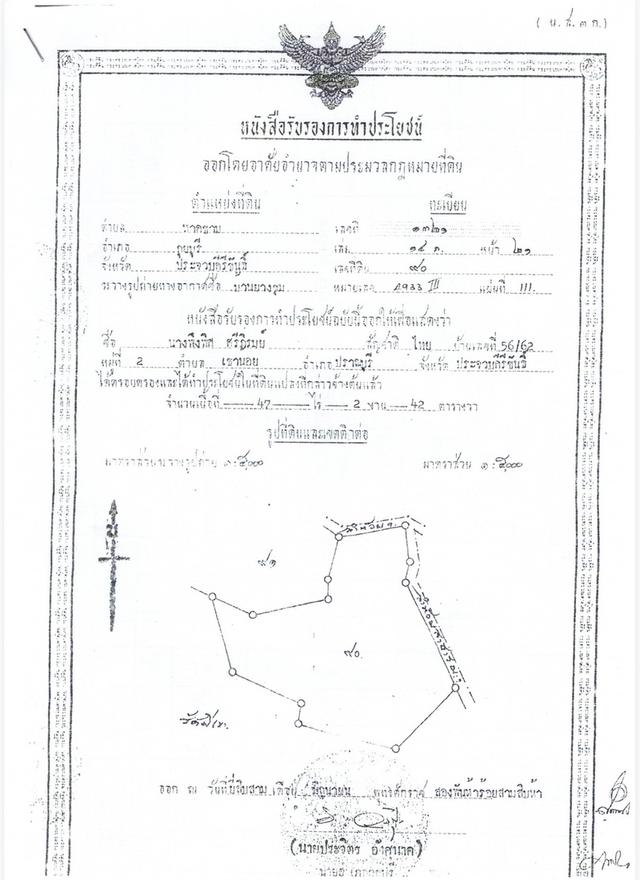 ( น.ส.๓ ก.)
หนังสือรับรองการทำประโยชน์
ออกโดยอาศัยอำนาจตามประมวลกฎหมายที่ดิน
ตำแหน่งที่ดิน ทะเบียน
ตำบล หาดขาม เลขที่ ๑๓๒๑
อำเภอ กุยบุรี เล่ม ๑๔ ก. หน้า ๒๑
จังหวัด ประจวบคีรีขันธ์ เลขที่ดิน ๙๐
ระวางรูปถ่ายทางอากาศชื่อ บ้านยางชุม หมายเลข 4933 III แผ่นที่ 111
หนังสือรับรองการทำประโยชน์ฉบับนี้ออกให้เพื่อแสดงว่า
ชื่อ นางพึงพิศ ศรีภิรมย์ สัญชาติ ไทย บ้านเลขที่ 56/62
หมู่ที่ 2 ตำบล เขาน้อย อำเภอ ปราณบุรี จังหวัด ประจวบคีรีขันธ์
ได้ครอบครองและได้ทำประโยชน์ในที่ดินแปลงที่กล่าวข้างต้นแล้ว
จำนวนเนื้อที่ 47 ไร่ 2 งาน 42 ตารางวา
รูปที่ดินและเขตติดต่อ
มาตราส่วนระวางรูปถ่าย ๑:๕,๐๐๐ มาตราส่วน ๑:๕,๐๐๐
น
๙๑
๙๐
ออก ณ วันที่ยี่สิบสาม เดือน มิถุนายน พุทธศักราช สองพันห้าร้อยสามสิบห้า
(นายประจิตร อังศุนาค)